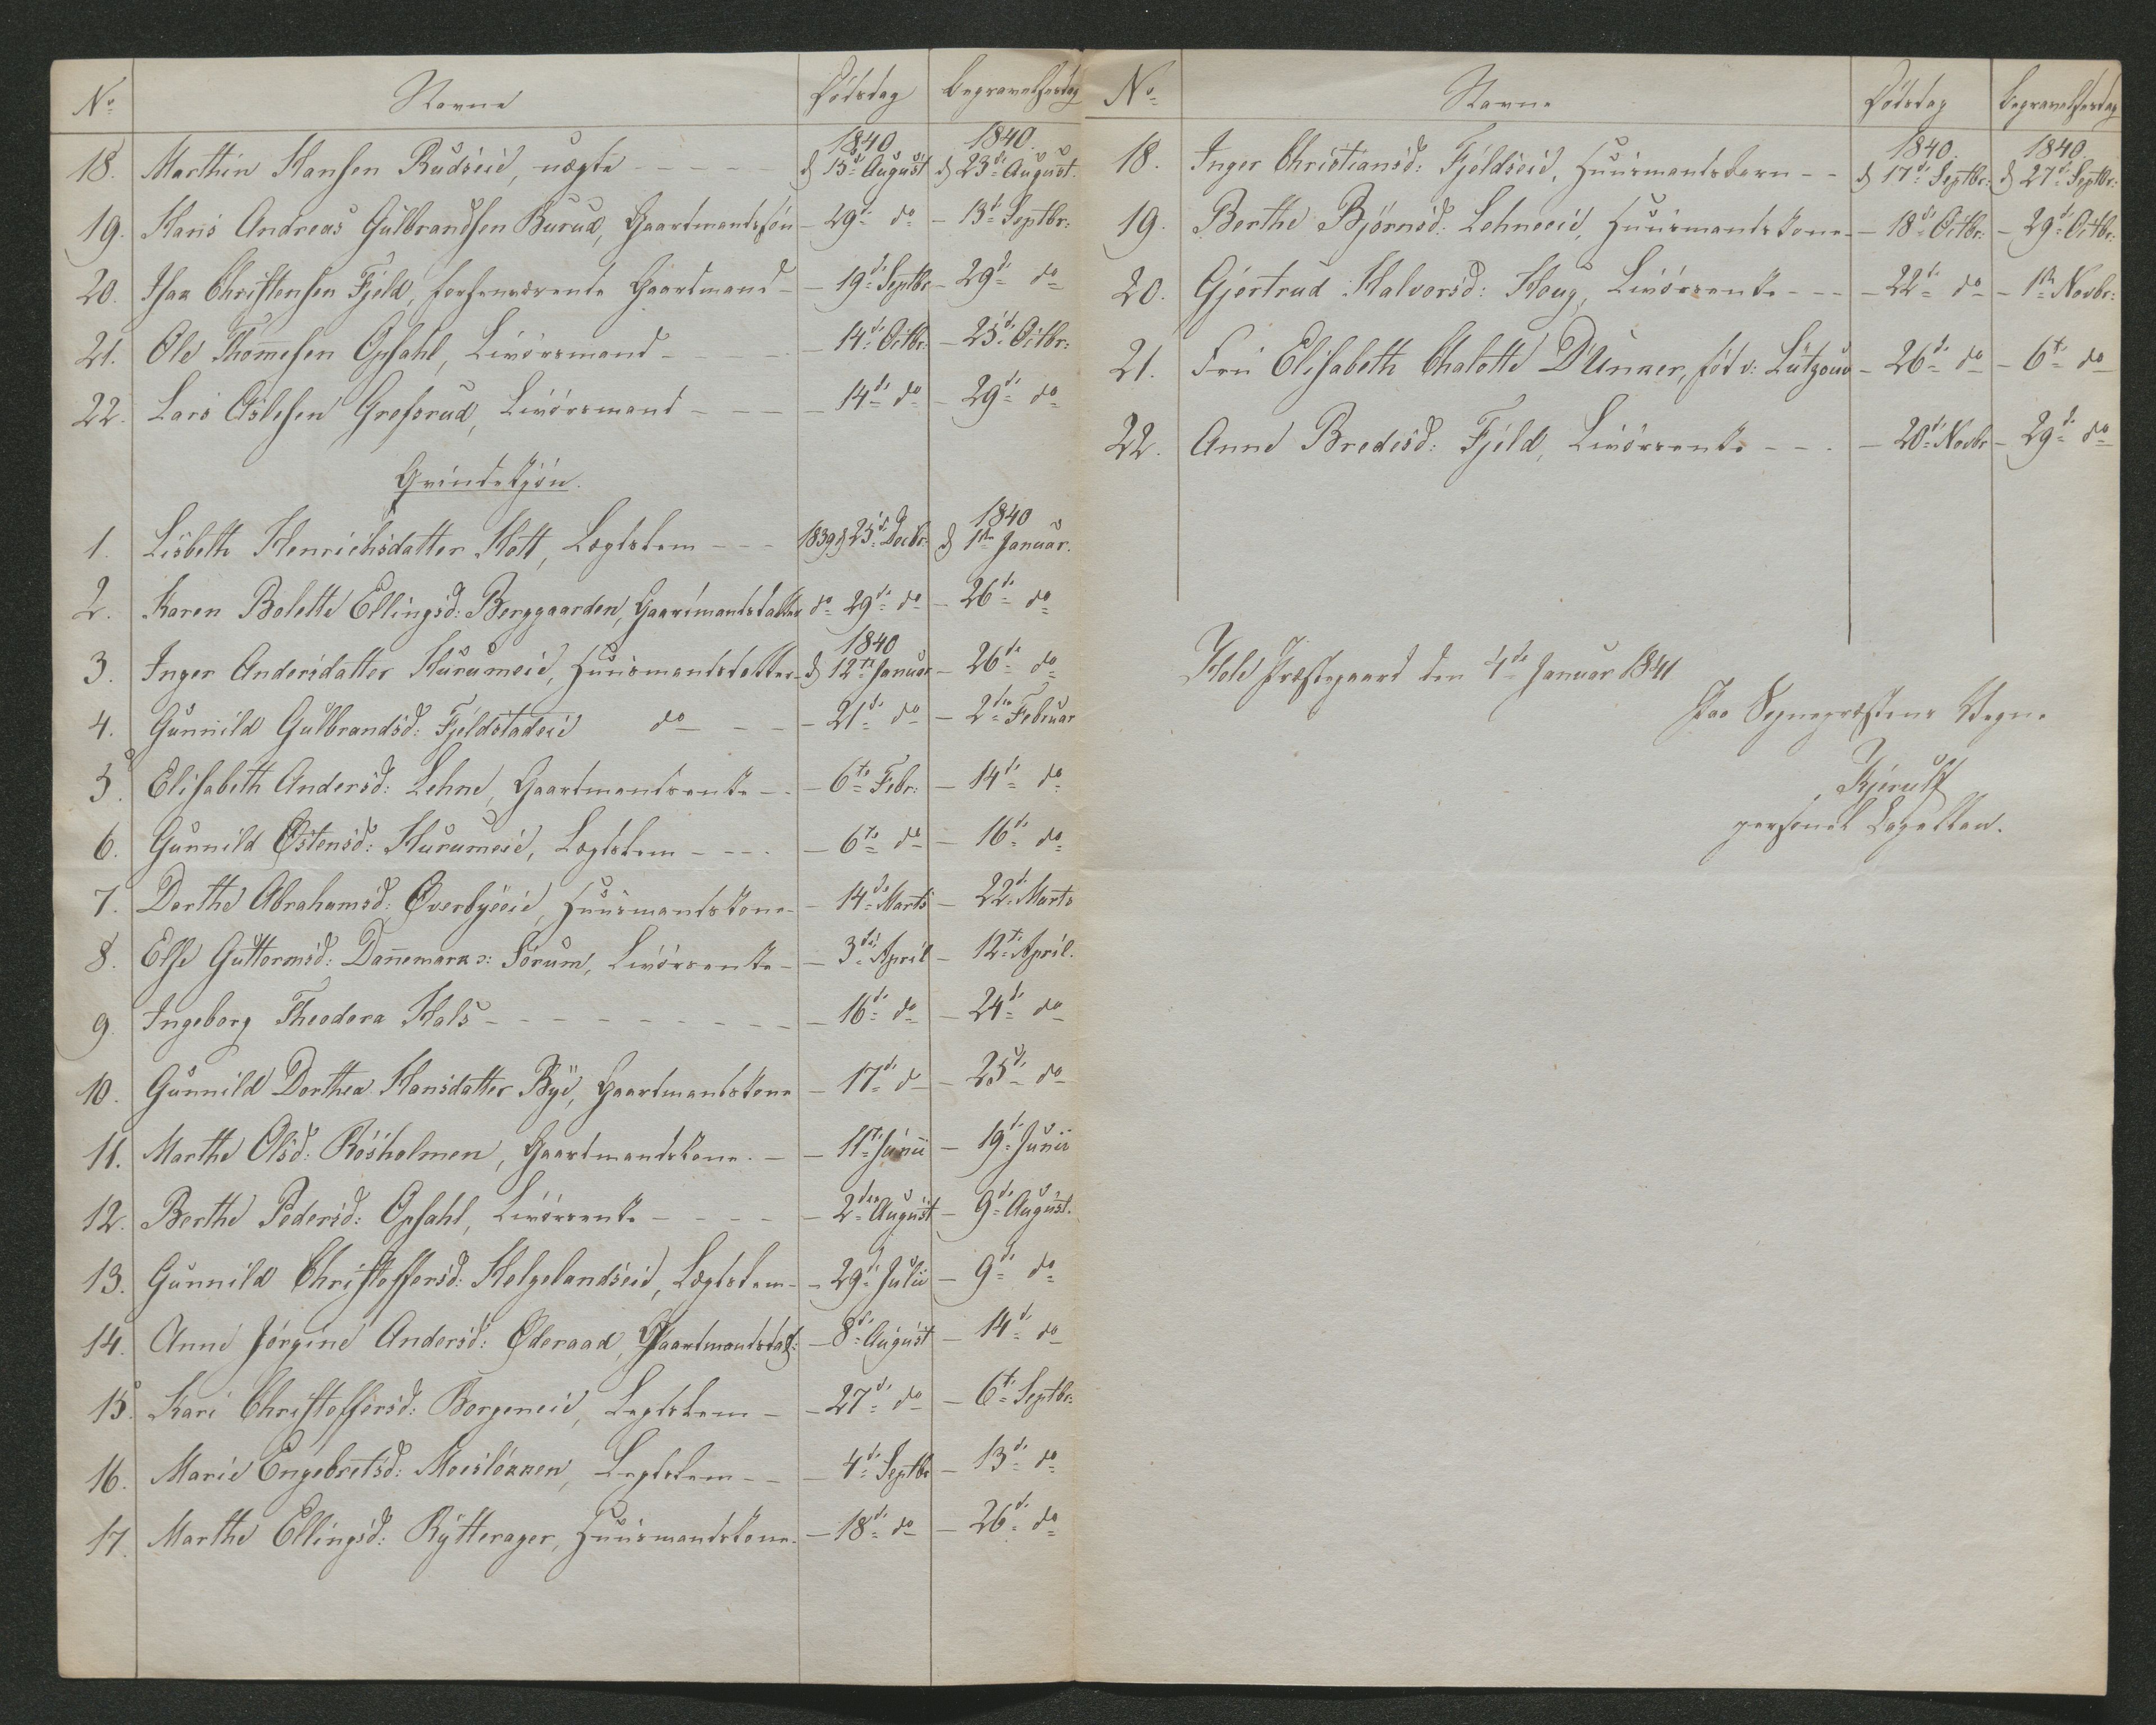 No Navne Dödsdag Begravelsesdag
1840 1840.
18. Marthin Hansen Rudseie, uægte - - - - - d 15de August d 23de August.
19. Hans Andreas Gulbrandsen Burud, Gaardmandssön - 29de do - 13de Septbr:
20. Isak Christensen Fjeld, forhenværende Gaardmand - - 19de Septbr - 29de do
21. Ole Thommesen Opsahl, Livörsmand - - - - 14de Octbr: - 25de Octbr:
22. Lars Aslesen Grefsrud, Livörsmand - - - - 14de do - 29de do
Qvindekjön.
1840
1. Lisbeth Henrichsdatter Hott, Lægdslem - - - 1839 d 25de Decbr: d 1ste Januar.
2. Karen Bolette Ellingsd: Berggaarden, Gaardmandsdatter do 29de do - 26de do
1840
3. Inger Andersdatter Kurumeie, Huusmandsdatter - d 12te Januar - 26de do
4. Gunnild Gulbrandsd: Fjeldstadeie do - - - 21de do - 2den Februar
5. Elisabeth Andersd: Lehne, Gaardmandsenke - - - 6te Febr: - 14de do
6. Gunnild Østensd: Kurumeie, Lægdslem - - - - 6te do - 16de do
7. Dorthe Abrahamsd: Øverbyeeie, Huusmandskone - - 14de Marts - 22de Marts
8. Else Guttormsd: Dannemark s: Sörum, Livörsenke - - 3die April - 12te April.
9. Ingeborg Theodora Hals - - - - - - - - - 16de do - 24de do
10. Gunnild Dorthea Hansdatter Bÿe, Gaardmandskone - 17de do - 25de do
11. Marthe Olsd: Rösholmen, Gaardmandskone. - - 11te Junii - 19de Junii
12. Berthe Pedersd: Opsahl, Livörsenke - - - - - 2den August - 9de August.
13. Gunnild Christoffersd: Helgelandseie, Lægdslem - - 29de Julii - 9de do
14. Anne Jörgine Andersd: Øderaad, Gaardmandsdat: - 8de August - 14de do
15. Kari Christoffersd: Borgeneie, Lægdslem - - 27de do - 6te Septbr:
16. Marie Engebretsd: Moeslökken, Lægdslem - - - 4de Septbr - 13de do
17. Marthe Ellingsd: Rytterager, Huusmandskone - - 18de do - 26de do
No Navne Dödsdag Begravelsesdag
1840 1840.
18. Inger Christiansd: Fjeldseie, Huusmandsbarn - - d 17de Septbr: d 27de Septbr:
19. Berthe Björnsd: Lehneeie, Huusmandskone - - 18de Octbr: - 29de Octbr:
20. Gjertrud Halvorsd: Houg, Livörsenke - - - - 22de do - 1ste Novbr:
21. Fru Elisabeth Chalotte D'Unker, föd v: Lützouv - 26de do - 6te do
22. Anne Bredesd: Fjeld, Livörsenke - - - - 20de Novbr - 29de do
Hole Præstegaard den 4de Januar 1841
Paa Sognepræstens Vegne
Kjerulf
personel Capellan.